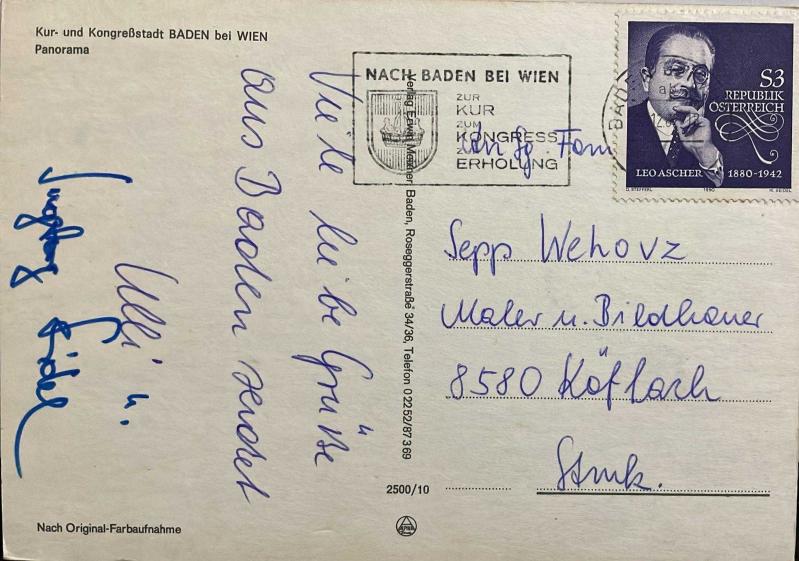 Kur- und Kongreßstadt BADEN bei WIEN
Panorama
NACH BADEN BEI WIEN
ZUR
KUR
ZUM
KONGRESS
ZUR
ERHOLUNG
S3
REPUBLIK
ÖSTERREICH
LEO ASCHER 1880-1942
1990
Viele liebe Grüße
aus Baden sendet
Ulli u.
Verlag Erwin Baden, Roseggerstraße 34/36, Telefon 02252/87369
An Fam
Sepp Wehovz
Maler u. Bildhauer
8580 Köflach
Stmk.
2500/10
Nach Original-Farbaufnahme